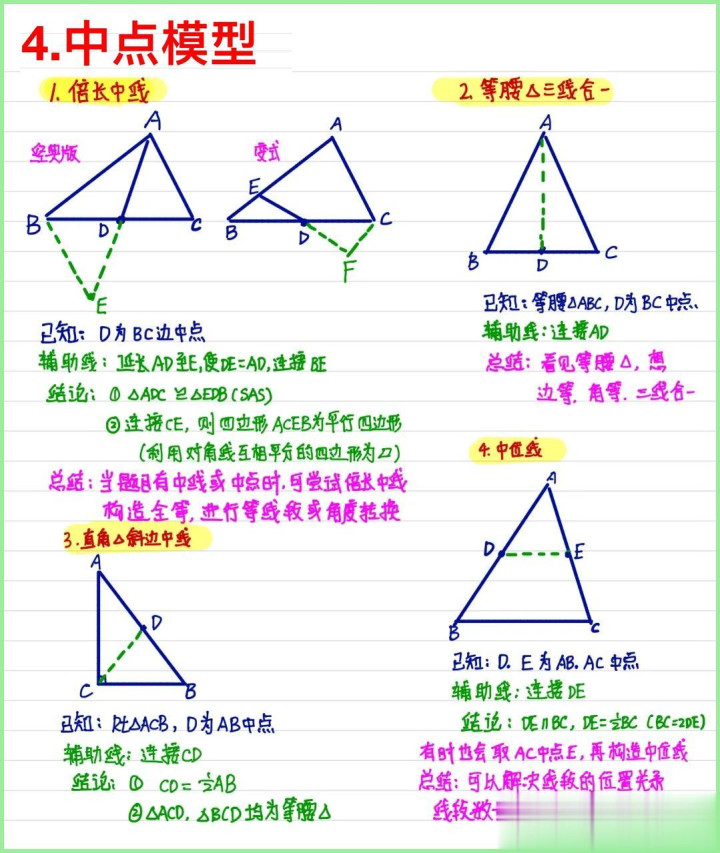 4.中点模型
1. 倍长中线
A
B
D
C
E
变式
A
E
B
D
C
F
已知: D为BC边中点
辅助线: 延长AD至E,使DE=AD,连接BE
结论: ① △ADC≌△EDB(SAS)
②连接CE, 则四边形ACEB为平行四边形
(利用对角线互相平分的四边形为▱)
总结:当题目有中线或中点时,可尝试倍长中线
构造全等,进行等线段或角度转换
2. 等腰△三线合一
A
B
D
C
已知:等腰△ABC, D为BC中点.
辅助线:连接AD
总结: 看见等腰△, 想
边等, 角等, 三线合一
3.直角△斜边中线
A
D
C
B
已知: Rt△ACB, D为AB中点
辅助线: 连接CD
结论: ① CD=½AB
②△ACD, △BCD均为等腰△
4.中位线
A
D
E
B
C
已知: D. E为AB. AC中点
辅助线: 连接DE
结论: DE∥BC, DE=½BC (BC=2DE)
有时也会取AC中点E, 再构造中位线
总结: 可以解决线段的位置关系
线段数